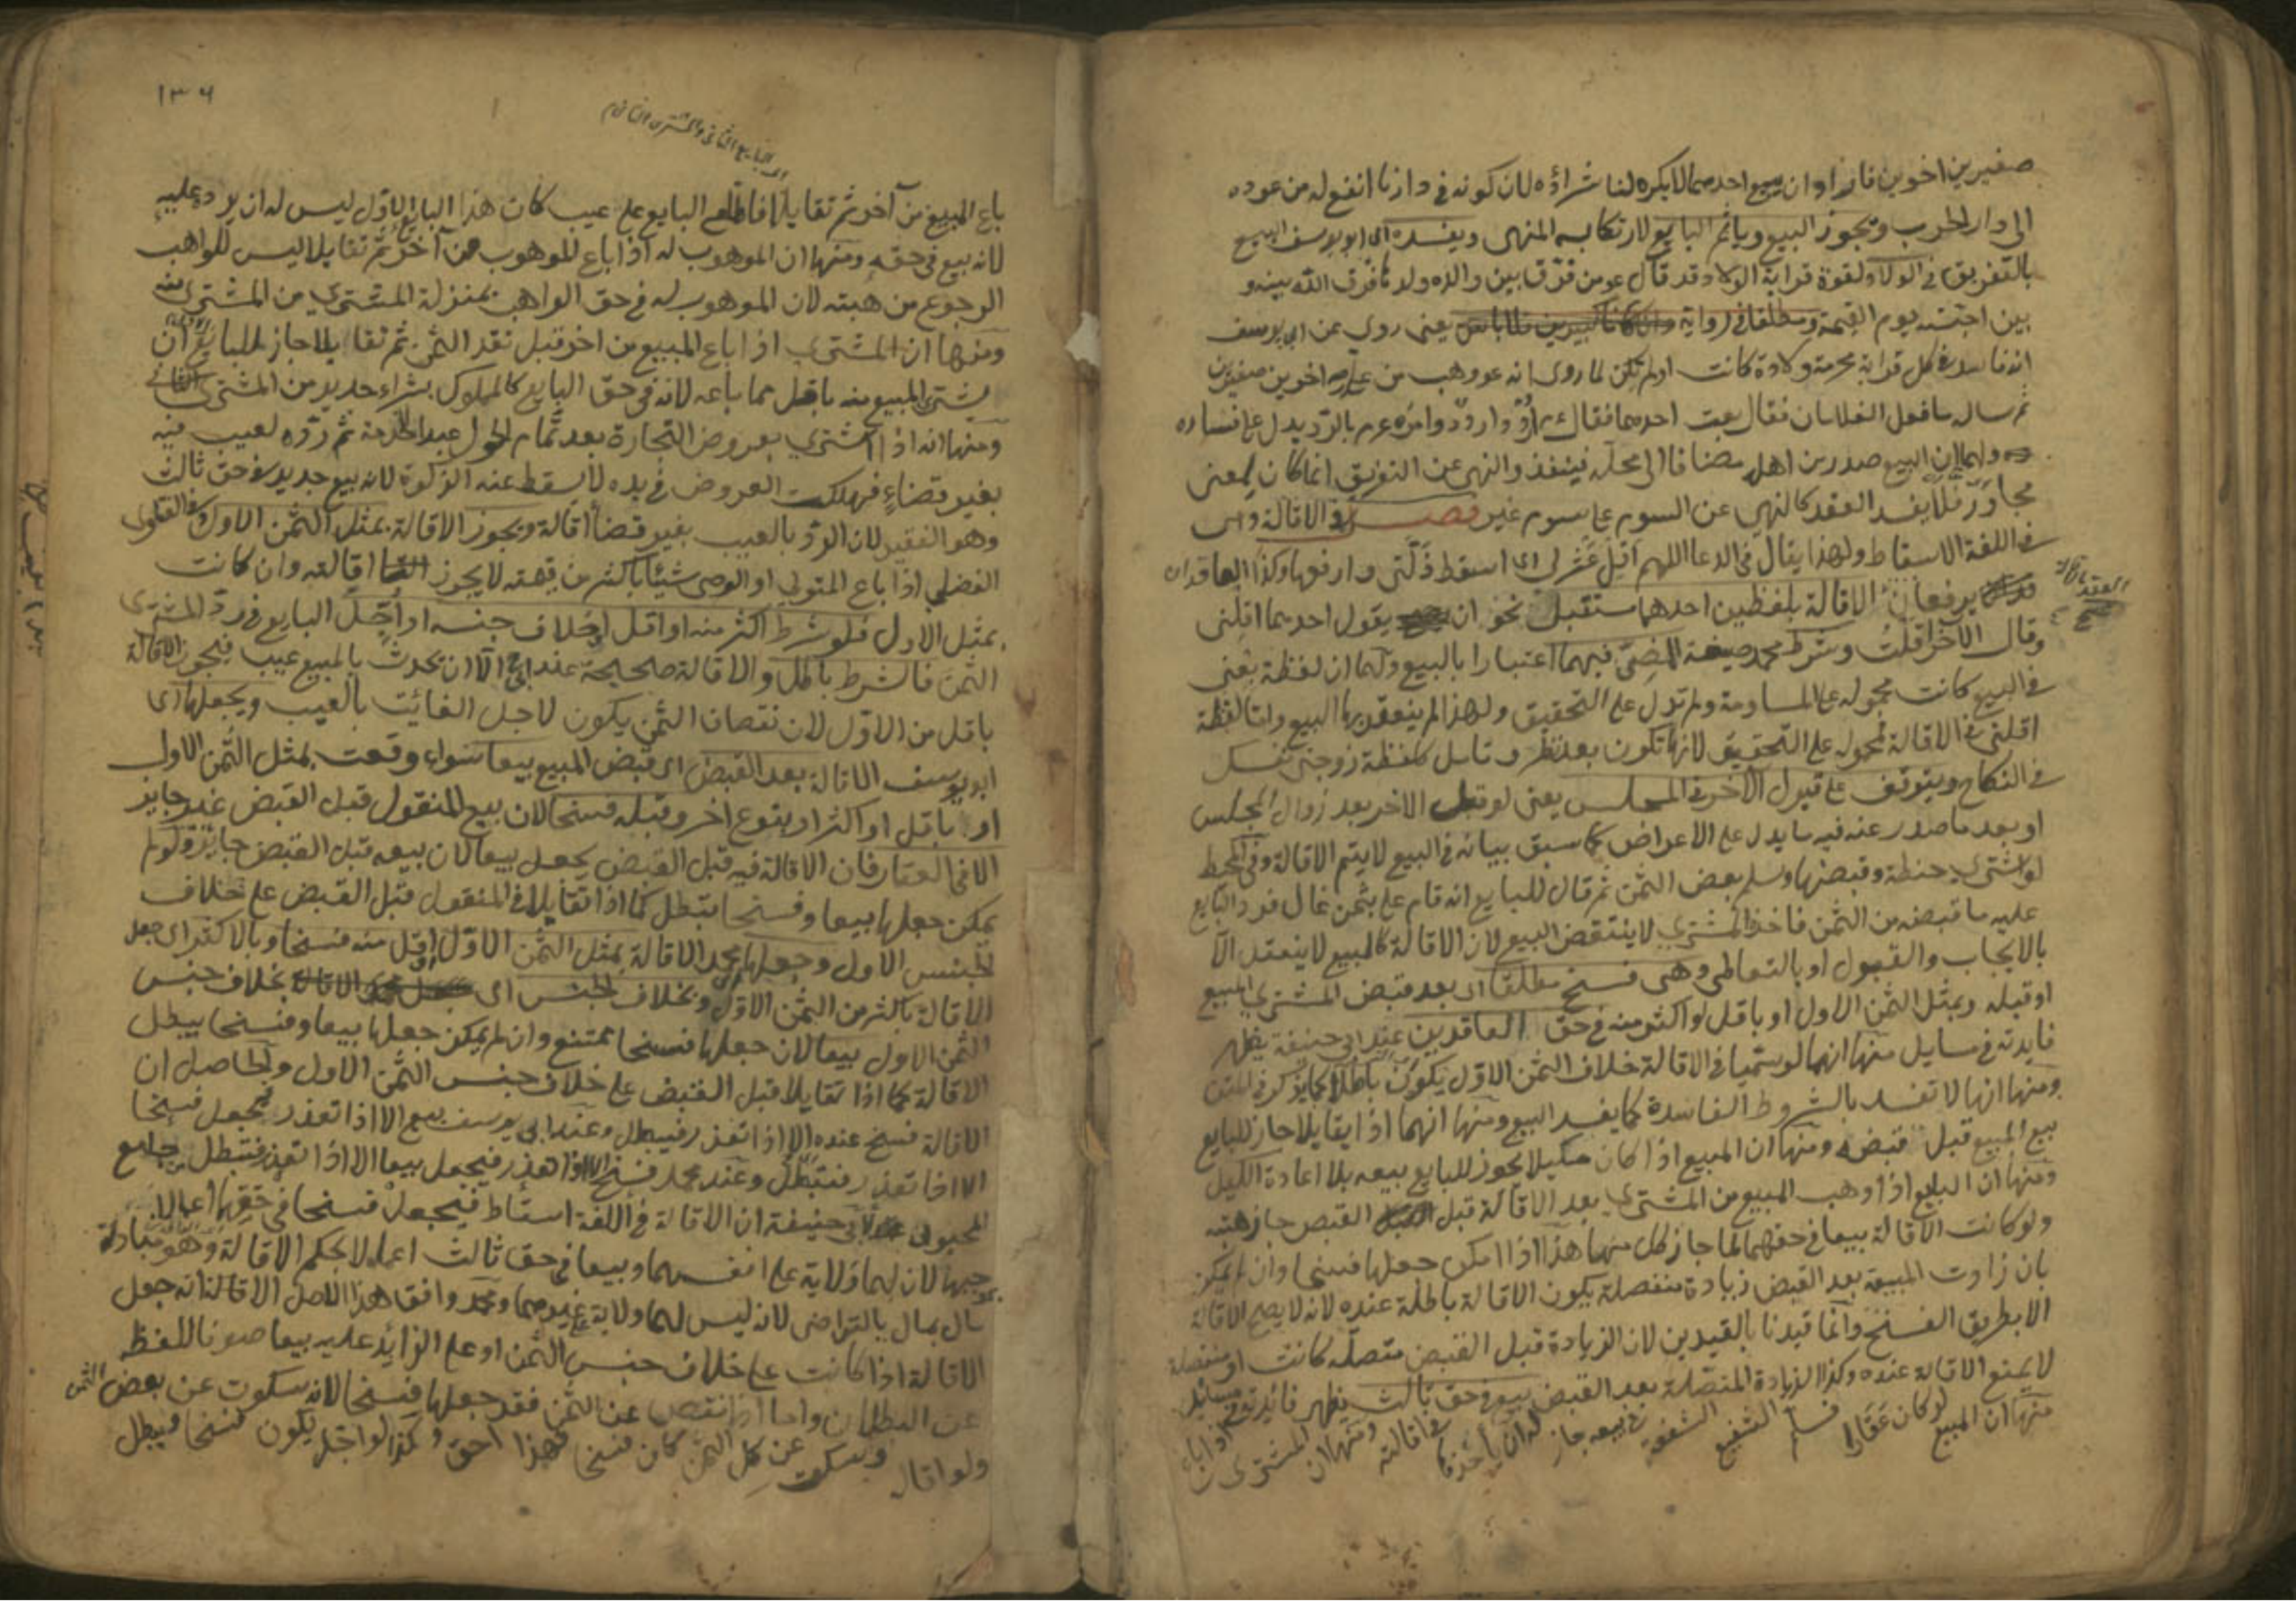 صغيرين اخوين فاراد ان يبيع احدهما لا يكره لنا شراؤه لان كونه في دارنا انفع له من عوده
الى دار الحرب ويجوز البيع وياثم البايع لارتكابه المنهى ويفسده اى ابو يوسف البيع
بالتفريق في الولاد لقوة قرابة الولاد وقد قال عم من فرق بين والده وولدها فرق الله بينه و
بين احبته يوم القيمة ومطلقا في رواية يعنى روى عن ابي يوسف
انه فاسد في كل قرابة محرمة ولادة كانت او لم تكن لما روى انه عم وهب من على رضـ اخوين صغيرين
ثم ساله ما فعل الغلامان فقال بعت احدهما فقال عم اردد اردد وامره عم بالرد يدل على فساده
ولهما ان البيع صدر من اهله مضافا الى محله فينفذ والنهى عن التفريق انما كان لمعنى
مجاور فلا يفسد العقد كالنهى عن السوم على سوم غيره فصل في الاقالة وهى
في اللغة الاسقاط ولهذا يقال في الدعا اللهم اقل عثرتى اى اسقط ذلتى وارفعها وكذا العاقدان
يرفعان الاقالة بلفظين احدهما مستقبل نحو ان يقول احدهما اقلنى
وقال الاخر اقلت وشرط محمد صيغة المضى فيهما اعتبارا بالبيع ولهما ان لفظة بعنى
في البيع كانت محمولة على المساومة ولم تدل على التحقيق ولهذا لم ينعقد بها البيع واما لفظة
اقلنى في الاقالة محمولة على التحقيق لانها تكون بعد نظر وتامل كلفظة زوجنى نفسك
في النكاح ويتوقف على قبول الاخر في المجلس يعنى لو قبل الاخر بعد زوال المجلس
او بعد ما صدر عنه فيه ما يدل على الاعراض كما سبق بيانه في البيع لا يتم الاقالة وفي المحيط
لو اشترى حنطة وقبضها وسلم بعض الثمن ثم قال للبايع انه قام على بثمن غال فرد البايع
عليه ما قبضه من الثمن فاخذ المشترى لا ينتقض البيع لان الاقالة كالبيع لا ينعقد الا
بالايجاب والقبول او بالتعاطى وهى فسخ مطلقا اى بعد قبض المشترى المبيع
او قبله وبمثل الثمن الاول او باقل او اكثر منه في حق العاقدين عند ابي حنيفة يظهر
فايدته في مسايل منها انهما لو سميا في الاقالة خلاف الثمن الاول يكون باطلا كما يذكر في المتن
ومنها انها لا تفسد بالشروط الفاسدة كما يفسد البيع ومنها انهما اذا تقايلا جاز للبايع
بيع المبيع قبل قبضه ومنها ان المبيع اذا كان مكيلا يجوز للبايع بيعه بلا اعادة الكيل
ومنها ان البايع اذا وهب المبيع من المشترى بعد الاقالة قبل القبض جاز هبته
ولو كانت الاقالة بيعا في حقهما لما جاز كل منها هذا اذا امكن جعلها فسخا وان لم يمكن
بان زادت المبيعة بعد القبض زيادة منفصلة يكون الاقالة باطلة عنده لانه لا يصح الاقالة
الا بطريق الفسخ وانما قيدنا بالقيدين لان الزيادة قبل القبض متصلة كانت او منفصلة
لا يمنع الاقالة عنده وكذا الزيادة المتصلة بعد القبض بيع في حق ثالث يظهر فائدته في مسائل
منها ان المبيع لو كان عقارا فسلم الشفيع الشفعة في بيعه جاز له ان ياخذها في اقالته ومنها ان المشترى اذا
١٣٦
اى البايع الثانى والمشترى الثانى
باع المبيع من آخر ثم تقايلا فاطلع البايع على عيب كان هذا البايع الاول ليس له ان يرد عليه
لانه بيع في حقه ومنها ان الموهوب له اذا باع الموهوب من آخر ثم تقايلا ليس للواهب
الرجوع من هبته لان الموهوب له في حق الواهب بمنزلة المشترى من المشترى منه
ومنها ان المشترى اذا باع المبيع من اخر قبل نقد الثمن ثم تقايلا جاز للبايع ان
يشترى المبيع منه باقل مما باعه لانه في حق البايع كالمملوك بشراء جديد من المشترى الثانى
ومنها انه اذا اشترى بعروض التجارة بعد تمام الحول عبد الخدمة ثم رده لعيب فيه
بغير قضاء فهلكت العروض في يده لا يسقط عنه الزكوة لانه بيع جديد في حق ثالث
وهو الفقير لان الرد بالعيب بغير قضا اقالة ويجوز الاقالة بمثل الثمن الاول وفي الفتاوى
الفضلى اذا باع المتولى او الوصى شيئا باكثر من قيمته لا يجوز اقالته وان كانت
بمثل الاول فلو شرط اكثر منه او اقل او خلاف جنسه او اجل البايع في رد المشترى
الثمن فالشرط باطل والاقالة صحيحة عند ابي ح الا ان يحدث بالمبيع عيب فيجوز الاقالة
باقل من الاول لان نقصان الثمن يكون لاجل الفائت بالعيب ويجعلها اى
ابو يوسف الاقالة بعد القبض اى قبض المبيع بيعا سواء وقعت بمثل الثمن الاول
او باقل او اكثر او بنوع اخر وقبله فسخا لان بيع المنقول قبل القبض غير جايز
الا في العقار فان الاقالة فيه قبل القبض يجعل بيعا لان بيعه قبل القبض جايز ولو لم
يمكن جعلها بيعا وفسخا تبطل كما اذا تقايلا في المنقول قبل القبض على خلاف
الجنس الاول وجعلها محمد الاقالة بمثل الثمن الاول او اقل منه فسخا وبالاكثر اى جعل
الاقالة باكثر من الثمن الاول وبخلاف الجنس اى الاقالة بخلاف جنس
الثمن الاول بيعا لان جعلها فسخا ممتنع وان لم يمكن جعلها بيعا وفسخا يبطل
الاقالة كما اذا تقايلا قبل القبض على خلاف جنس الثمن الاول والحاصل ان
الاقالة فسخ عنده الا اذا تعذر فيبطل وعند ابي يوسف بيع الا اذا تعذر فيجعل فسخا
الا اذا تعذر فتبطل وعند محمد فسخ الا اذا تعذر فيجعل بيعا الا اذا تعذر فتبطل من جامع
المحبوبى لابي حنيفة ان الاقالة في اللغة اسقاط فيجعل فسخا في حقهما اعمالا
لان لهما ولاية على انفسهما وبيعا في حق ثالث اعمالا لحكم الاقالة وهو مبادلة
مال بمال بالتراضى لانه ليس لهما ولاية على غيرهما ومحمد وافق هذا الاصل الا انه جعل
الاقالة اذا كانت على خلاف جنس الثمن او على الزائد عليه بيعا صونا للفظ
عن البطلان واما اذا نقص عن الثمن فقد جعلها فسخا لانه سكوت عن بعض الثمن
ولو اقال وسكت عن كل الثمن كان فسخا فهذا احق وكذا لو اجل يكون فسخا فيبطل